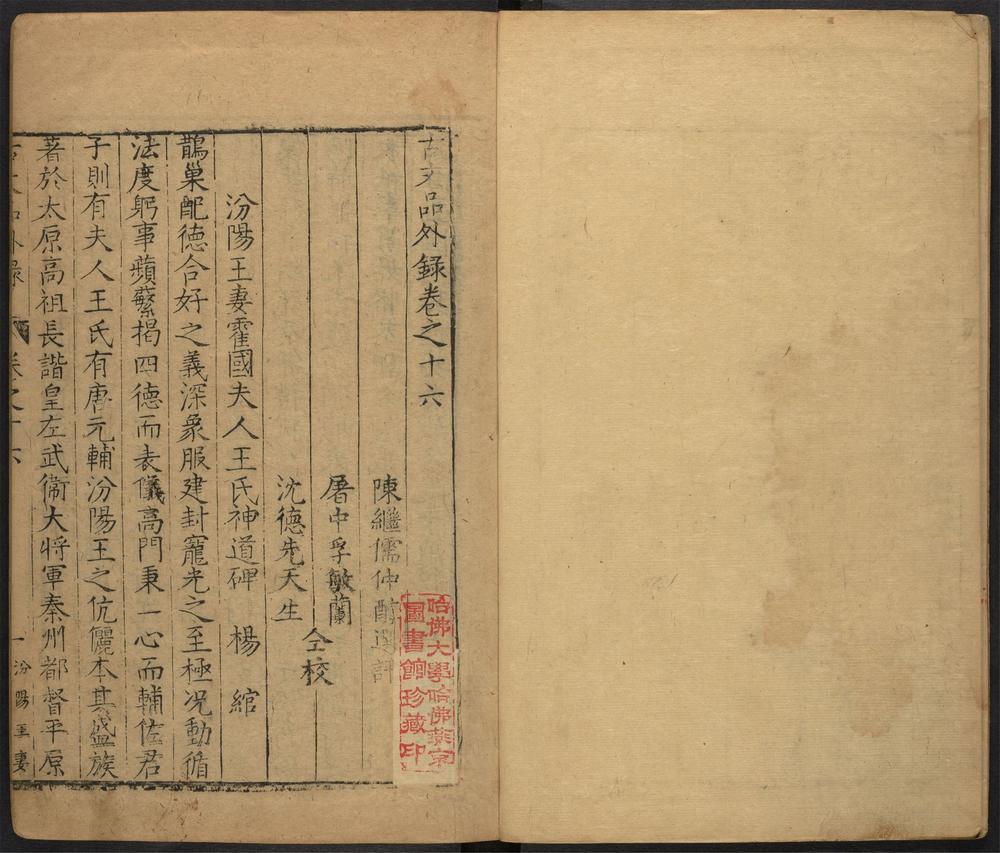 古文品外錄卷之十六
陳繼儒仲醇選評
屠中孚敏蘭
沈德先天生
仝校
汾陽王妻霍國夫人王氏神道碑 楊綰
鵲巢配德合好之義深象服建封寵光之至極况動循
法度躬事蘋蘩揭四德而表儀高門秉一心而輔佐君
子則有夫人王氏有唐元輔汾陽王之伉儷本其盛族
著於太原高祖長諧皇左武衛大將軍秦州都督平原
古文品外錄 卷之十六 一 汾陽王妻
哈佛大學哈佛燕京
圖書館珍藏印